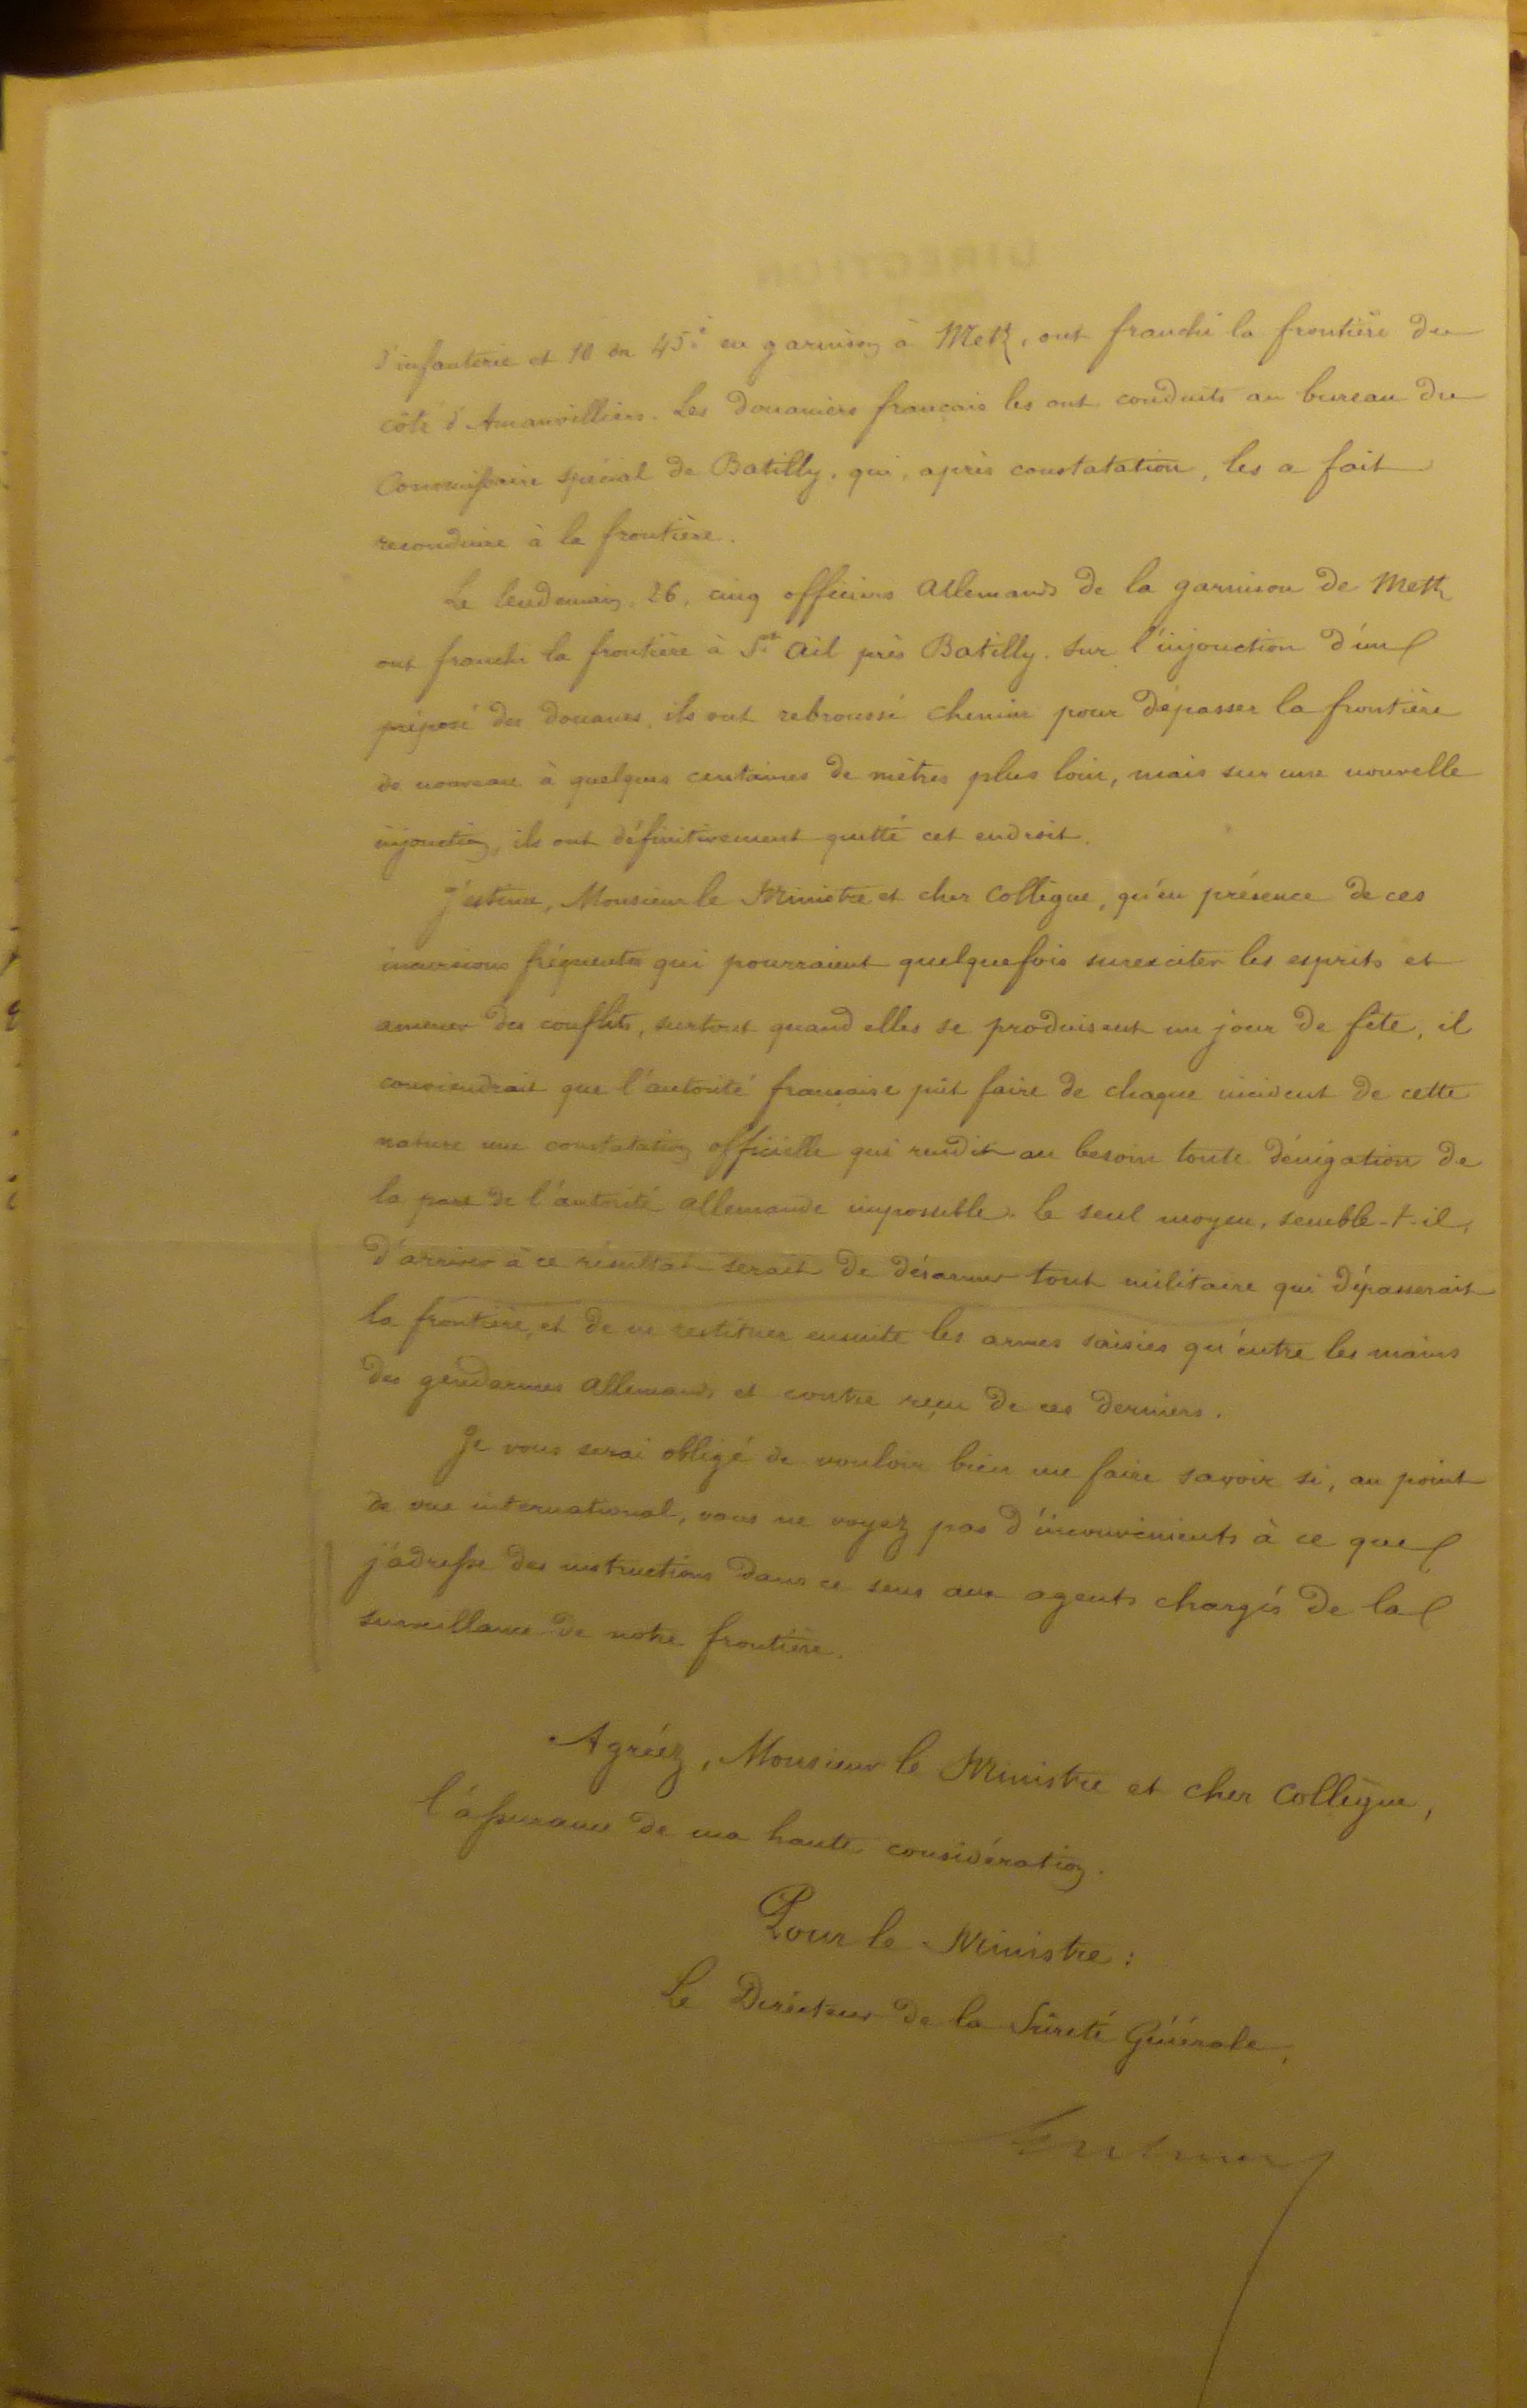 d'infanterie et 10 du 45e en garnison à Metz, ont franchi la frontière du
côté d'Amanvilliers. Les douaniers français les ont conduits au bureau du
Commissaire spécial de Batilly, qui, après constatation, les a fait
reconduire à la frontière.
Le lendemain, 26, cinq officiers allemands de la garnison de Metz
ont franchi la frontière à St Ail près Batilly. Sur l'injonction d'un
préposé des douanes, ils ont rebroussé chemin pour dépasser la frontière
de nouveau à quelques centaines de mètres plus loin, mais sur une nouvelle
injonction, ils ont définitivement quitté cet endroit.
J'estime, Monsieur le Ministre et cher Collègue, qu'en présence de ces
incursions fréquentes qui pourraient quelquefois surexciter les esprits et
amener des conflits, surtout quand elles se produisent un jour de fête, il
conviendrait que l'autorité française pût faire de chaque incident de cette
nature une constatation officielle qui rendit au besoin toute dénégation de
la part de l'autorité allemande impossible. Le seul moyen, semble-t-il,
d'arriver à ce résultat serait de désarmer tout militaire qui dépasserait
la frontière, et de ne restituer ensuite les armes saisies qu'entre les mains
des gendarmes allemands et contre reçu de ces derniers.
Je vous serai obligé de vouloir bien me faire savoir si, au point
de vue international, vous ne voyez pas d'inconvénients à ce que
j'adresse des instructions dans ce sens aux agents chargés de la
surveillance de notre frontière.
Agréez, Monsieur le Ministre et cher Collègue,
l'assurance de ma haute considération.
Pour le Ministre :
Le Directeur de la Sûreté Générale,